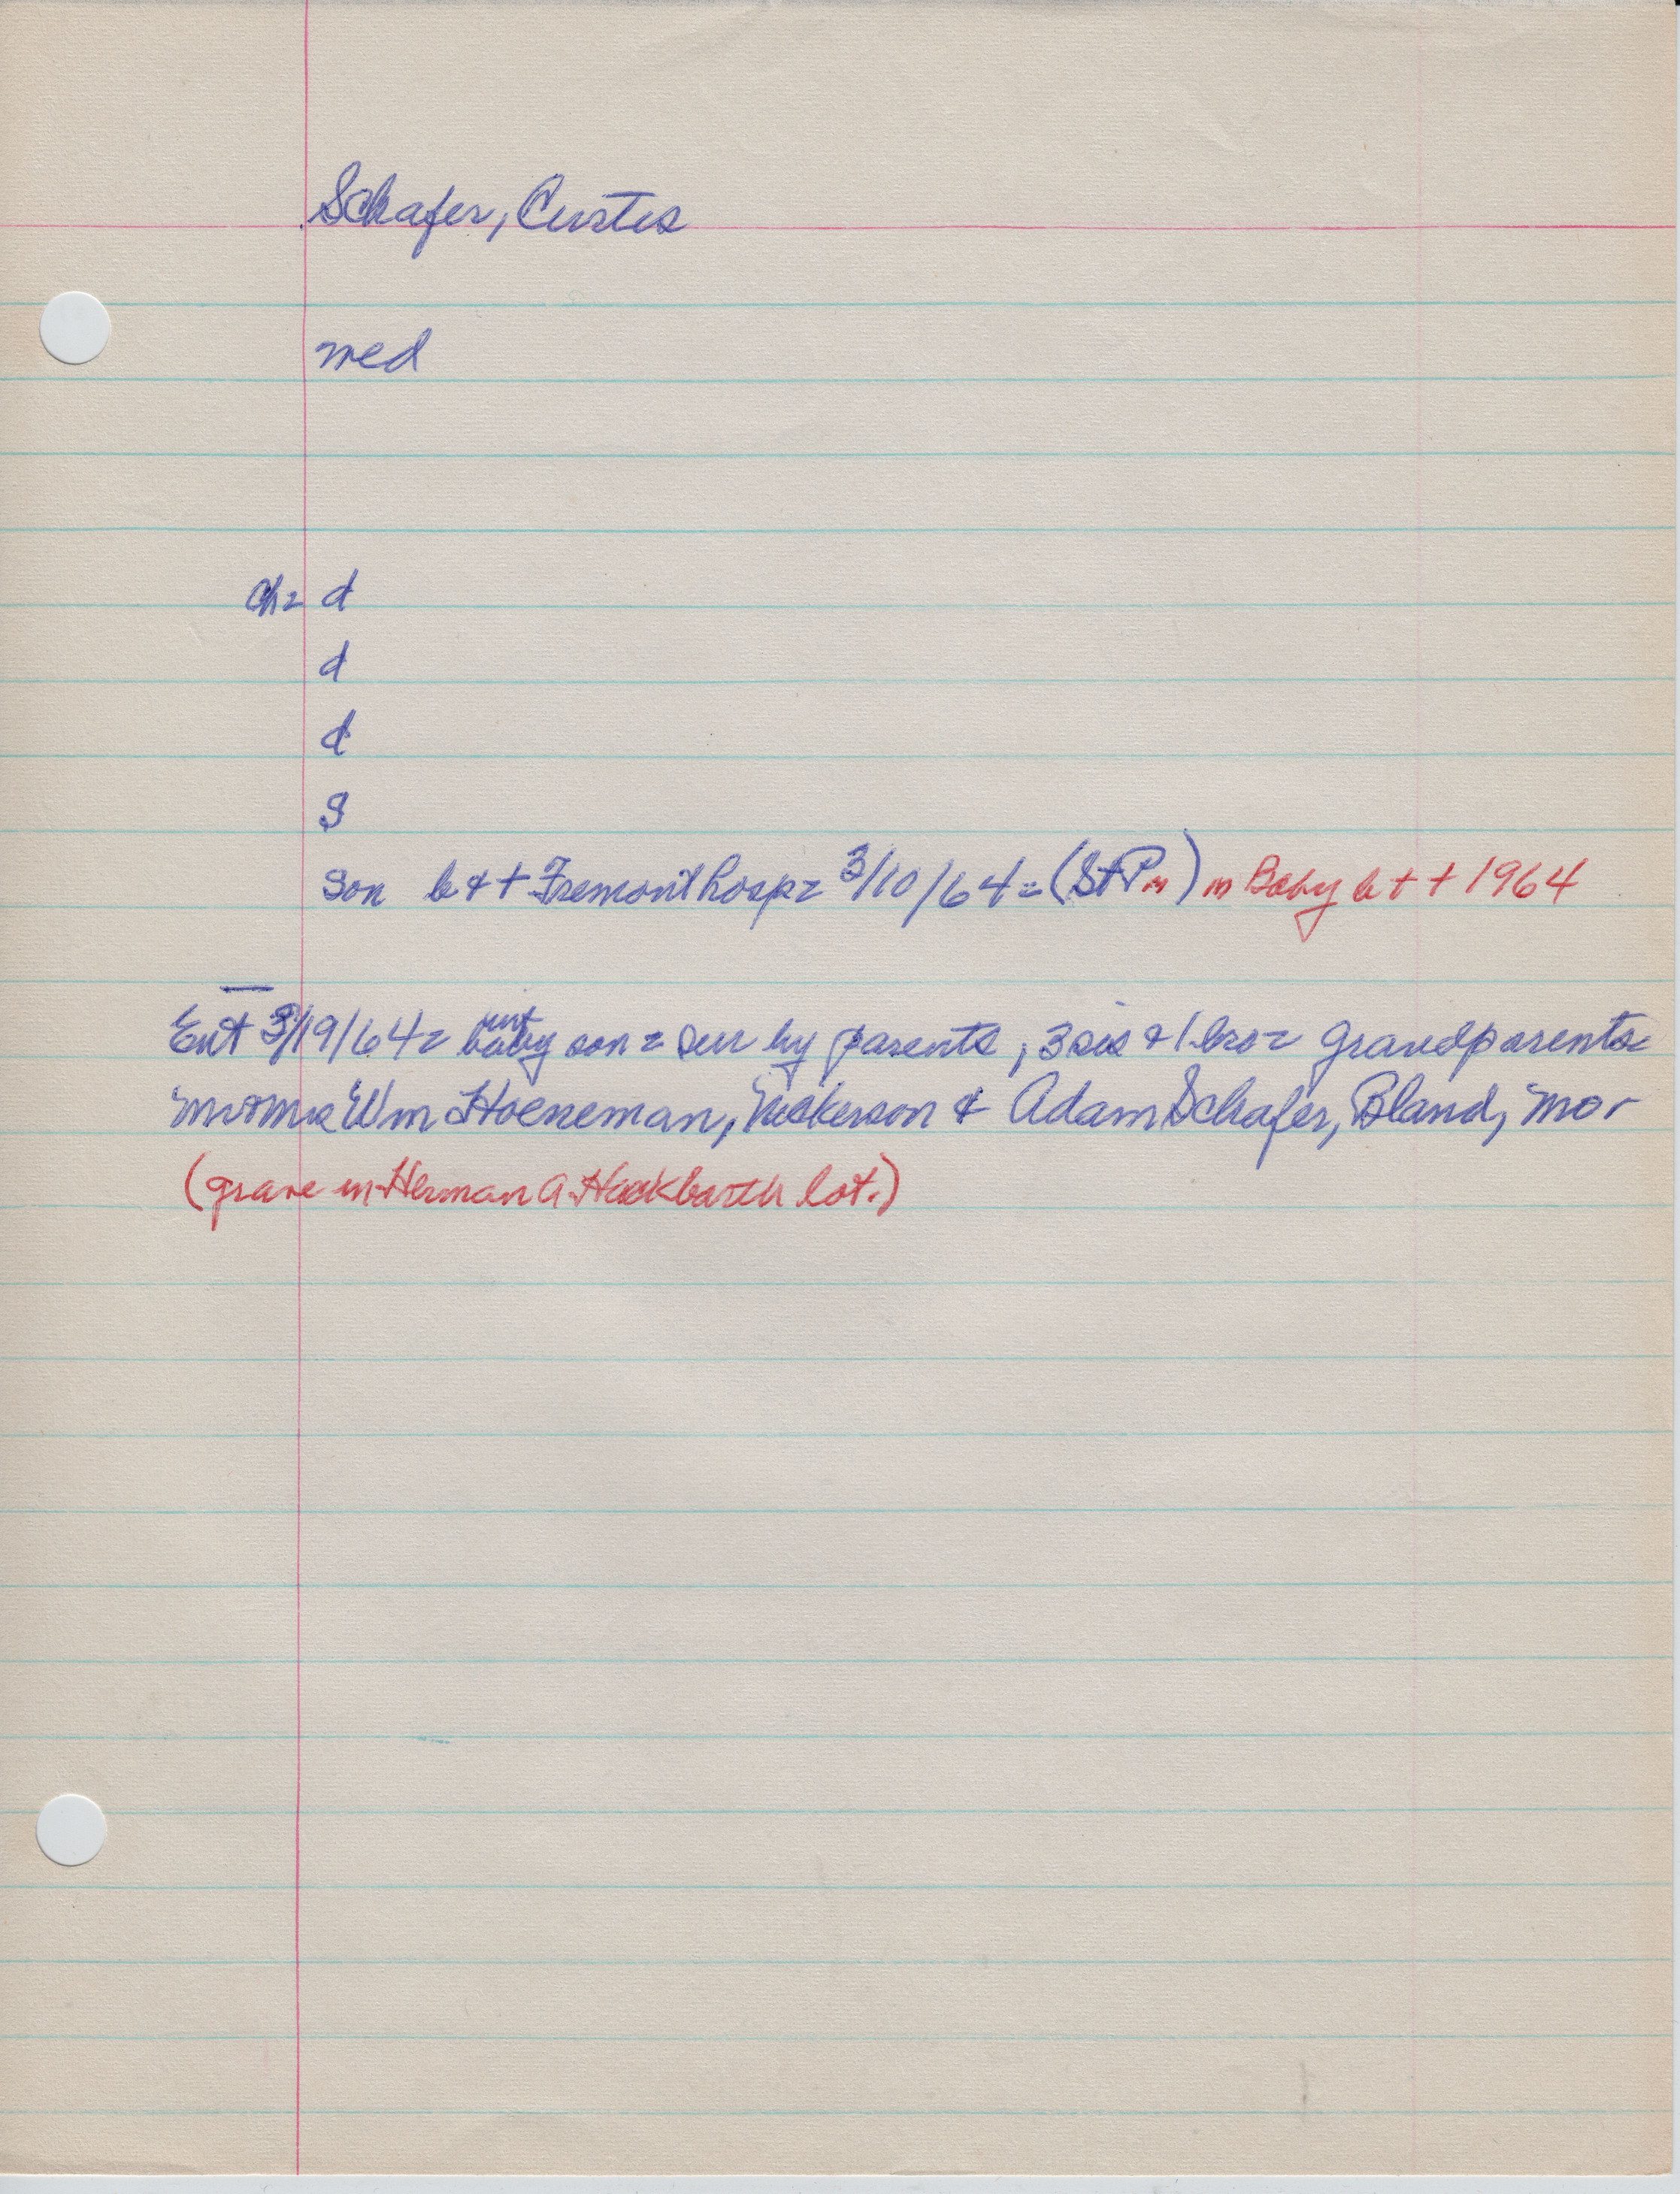 Schafer, Curtis
med
Ch = d
d
d
S
son b + † Fremont hosp = 3/10/64 = (St P m) m Baby b + † 1964
Ent 3/19/64 = inf baby son = sur by parents, 3 sis & 1 bro = grandparents =
mr & mrs Wm Hoeneman, Nickerson & Adam Schafer, Bland, Mo r
(grave in Herman A Hackbarth lot.)